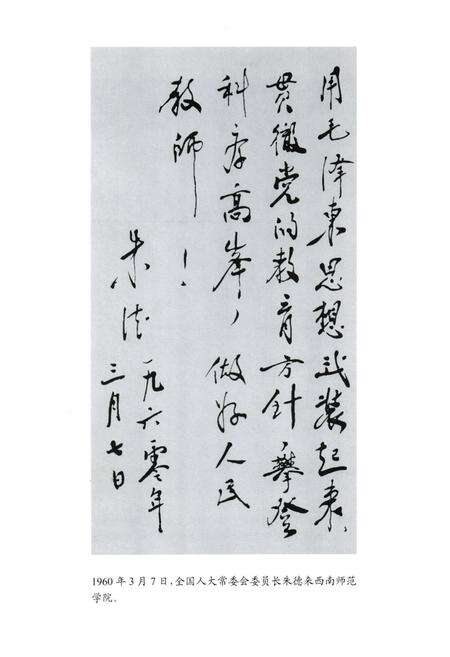 用毛泽东思想武装起来，
贯彻党的教育方针，攀登
科学高峰，做好人民
教师！
朱德
一九六零年
三月七日
1960 年 3 月 7 日，全国人大常委会委员长朱德来西南师范
学院．